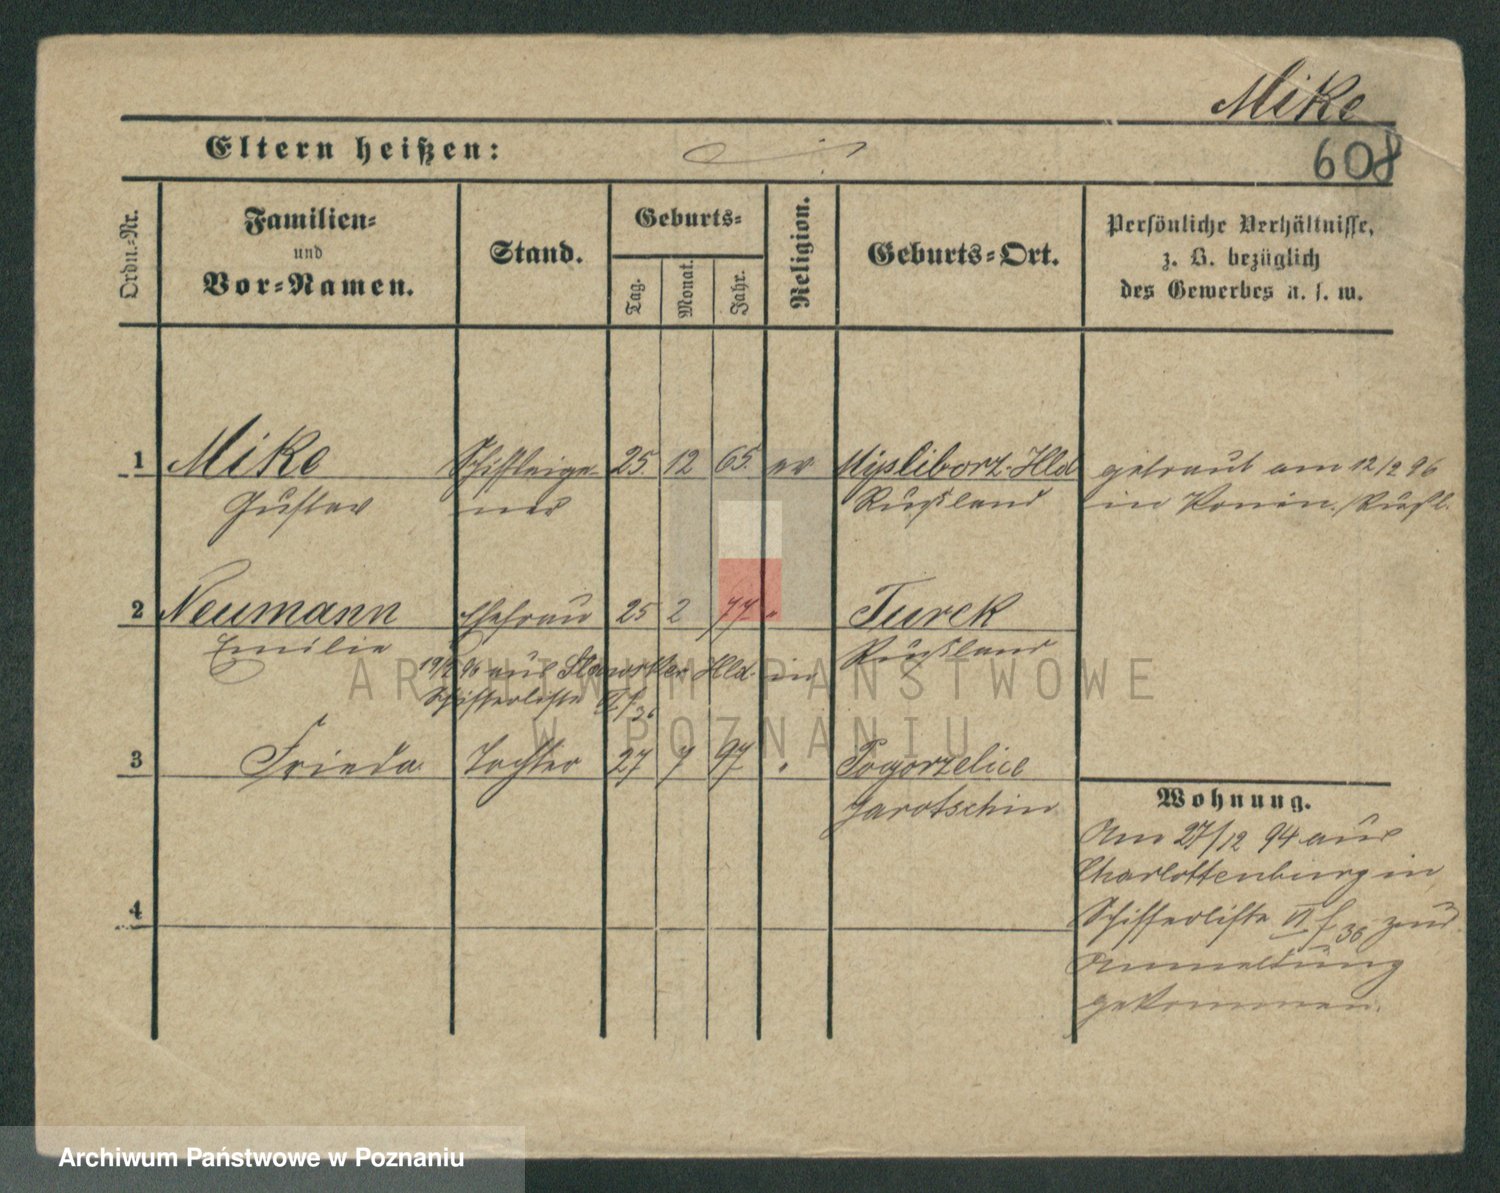 Mike
608
Eltern heißen:
Ordn.-Nr.
Familien=
und
Vor=Namen.
Stand.
Geburts=
Tag.
Monat.
Jahr.
Religion.
Geburts=Ort.
Persönliche Verhältnisse,
z. B. bezüglich
des Gewerbes u. s. w.
1 Mike Schiffseige- 25. 12 65. ev Mysliborz. Hld getraut am 12/2 96
Gustav ner Rußland in Konin. /Rußl.
2 Neumann Ehefrau 25 2 77 "
Turek
Emilie Rußland
aus Hld. in
Schifferliste VI f 36
3 Frieda Tochter 27 7 97 " Pogorzelice
Jarotschin
Wohnung.
Am 27/12 94 aus
Charlottenburg in
Schifferliste VI f 36 zur
Anmeldung
gekommen.
4
ARCHIWUM PAŃSTWOWE
W POZNANIU
Archiwum Państwowe w Poznaniu